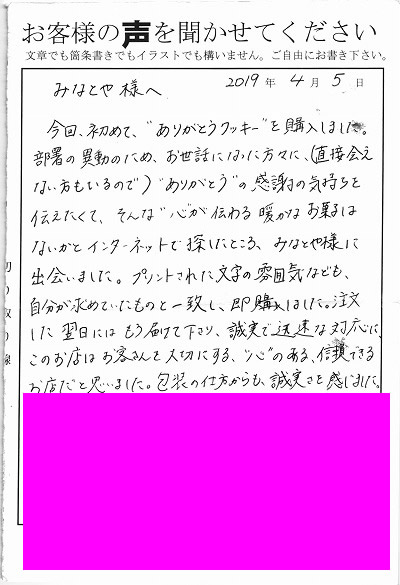 お客様の声を聞かせてください
文章でも箇条書きでもイラストでも構いません。ご自由にお書き下さい。
2019年 4月 5日
みなとや様へ
今回、初めて、"ありがとうクッキー"を購入しました。
部署の異動のため、お世話になった方々に、(直接会え
ない方もいるので)"ありがとう"の感謝の気持ちを
伝えたくて、そんな"心が伝わる暖かなお菓子は
ないかとインターネットで探したところ、みなとや様に
出会いました。プリントされた文字の雰囲気なども、
自分が求めていたものと一致し、即購入しました。注文
した翌日にはもう届けて下さり、誠実で迅速な対応に、
このお店はお客さんを大切にする、"心"のある、信頼できる
お店だと思いました。包装の仕方からも、誠実さを感じました。
切り取り線